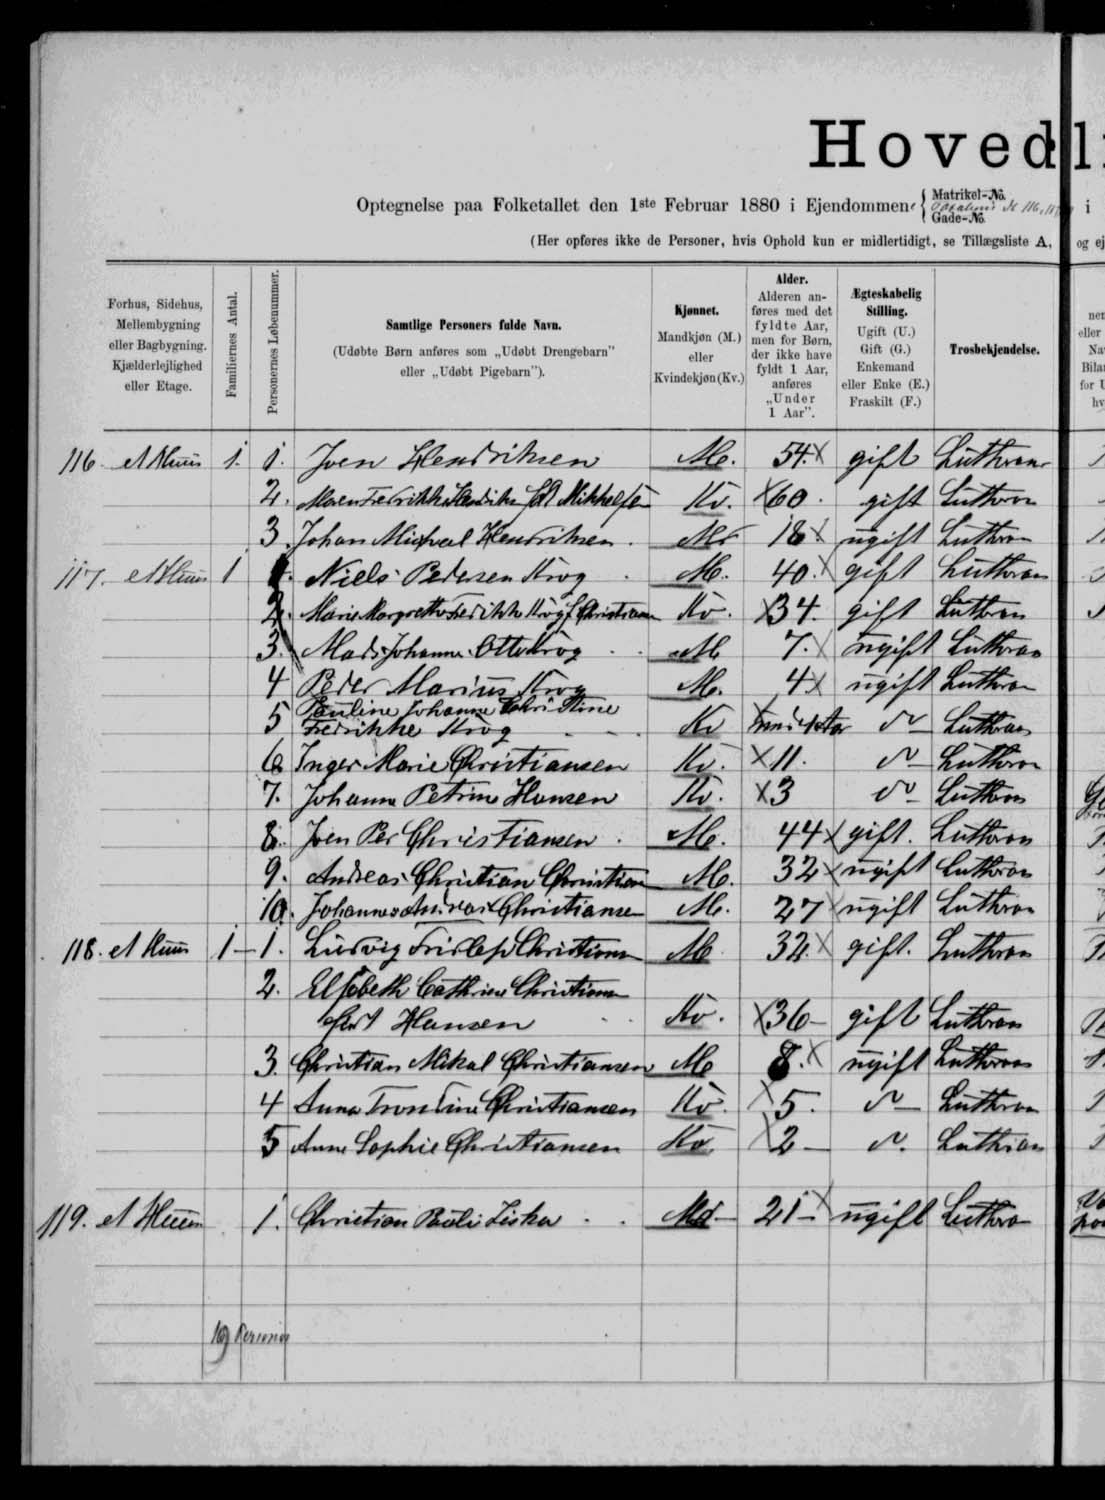 Hovedli
Optegnelse paa Folketallet den 1ste Februar 1880 i Ejendommene { Matrikel-No. Gade-No. i
(Her opføres ikke de Personer, hvis Ophold kun er midlertidigt, se Tillægsliste A, og ej
Forhus, Sidehus, Mellembygning eller Bagbygning. Kjælderlejlighed eller Etage.
Familiernes Antal.
Personernes Løbenummer.
Samtlige Personers fulde Navn.
(Udøbte Børn anføres som „Udøbt Drengebarn"
eller „Udøbt Pigebarn").
Kjønnet.
Mandkjøn (M.)
eller
Kvindekjøn (Kv.)
Alder.
Alderen an-
føres med det
fyldte Aar,
men for Børn,
der ikke have
fyldt 1 Aar,
anføres
„Under
1 Aar".
Ægteskabelig
Stilling.
Ugift (U.)
Gift (G.)
Enkemand
eller Enke (E.)
Fraskilt (F.)
Trosbekjendelse.
116. et Huus 1. 1. Joen Hendriksen M. 54 X gift Luthran
2. Maren Fredrikke Hendriksen født Mikkelsen Kv. X 60. gift Luthran
3. Johan Michael Hendriksen. M 18 X ugift Luthran
117. et Huus 1 1. Niels Pedersen Krog M. 40. X gift Luthran
2. Marie Margrethe Fredrikke Krog f. Christiansen Kv. X 34. gift Luthran
3. Mads Johannes Otto Krog M 7. X ugift Luthran
4 Peder Marius Krog M. 4 X ugift Luthran
5 Pauline Johanne Christine
Fredrikke Krog Kv X under 1 Aar do Luthran
6 Inger Marie Christiansen Kv. X 11. do Luthran
7. Johanne Petrine Hansen Kv. X 3 do Luthran
8. Joen Per Christiansen. M. 44 X gift. Luthran
9. Andreas Christian Christiansen M. 32 X ugift Luthran
10. Johannes Andreas Christiansen M. 27 X ugift Luthran
118. et Huus 1 1. Ludvig Fridlef Christiansen M 32. X gift. Luthran
2. Elsebeth Cathrine Christiansen
født Hansen Kv. X 36 gift Luthran
3. Christian Mikal Christiansen M 8. X ugift Luthran
4 Anna Christiansen Kv. X 5. do Luthran
5 Anne Sophie Christiansen Kv. X 2 do. Luthran
119. et Huus 1. Christian Pauli Ziska M 21 X ugift Luthran
19 Personer